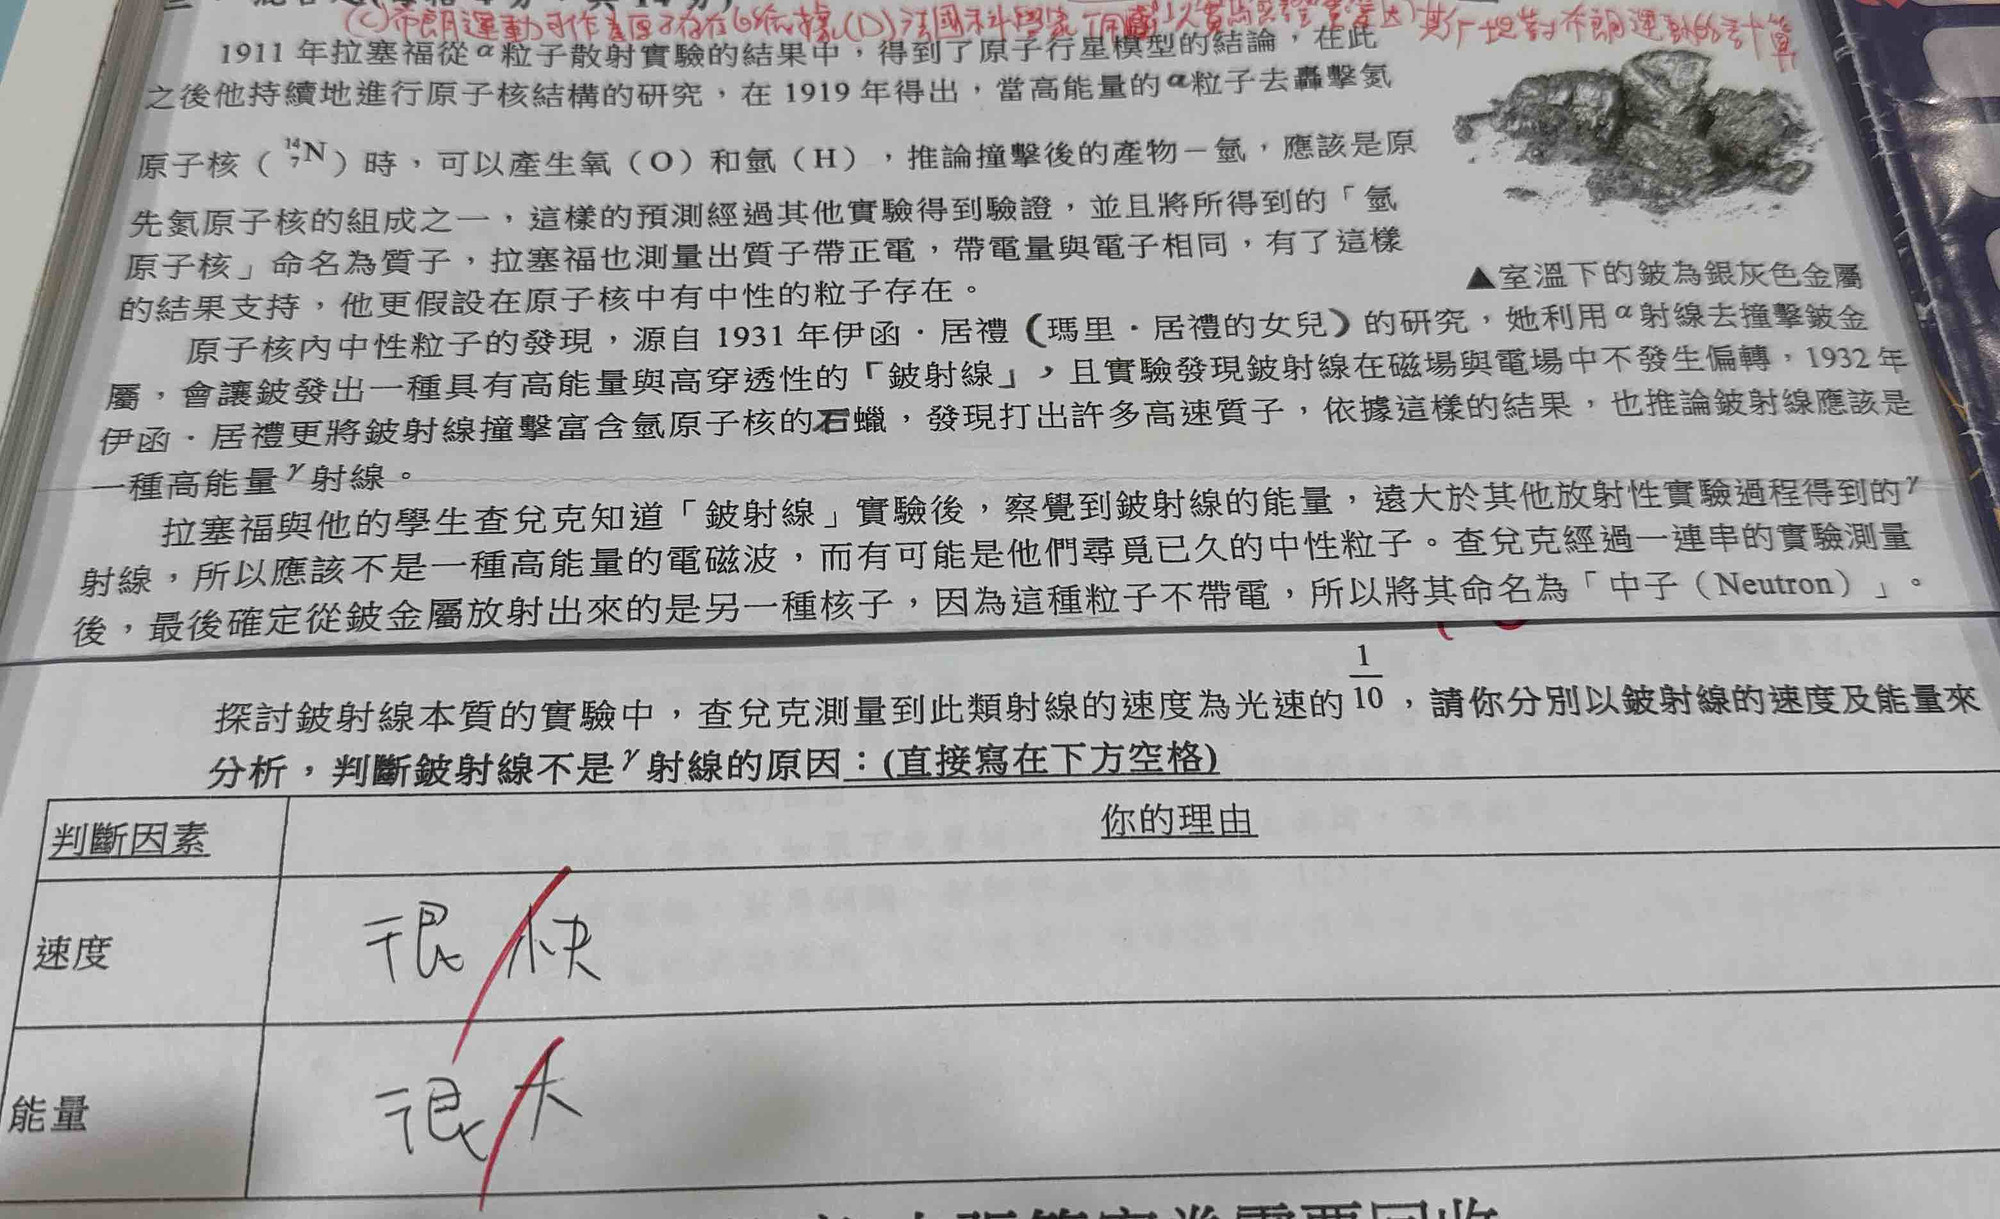 (C)布朗運動可作為原子存在的依據(D)法國科學家
1911 年拉塞福從α粒子散射實驗的結果中，得到了原子行星模型的結論，在此
之後他持續地進行原子核結構的研究，在 1919 年得出，當高能量的α粒子去轟擊氮
原子核（¹⁴₇N）時，可以產生氧（O）和氫（H），推論撞擊後的產物－氫，應該是原
先氮原子核的組成之一，這樣的預測經過其他實驗得到驗證，並且將所得到的「氫
原子核」命名為質子，拉塞福也測量出質子帶正電，帶電量與電子相同，有了這樣
的結果支持，他更假設在原子核中有中性的粒子存在。
▲室溫下的鈹為銀灰色金屬
原子核內中性粒子的發現，源自 1931 年伊函．居禮（瑪里．居禮的女兒）的研究，她利用α射線去撞擊鈹金
屬，會讓鈹發出一種具有高能量與高穿透性的「鈹射線」，且實驗發現鈹射線在磁場與電場中不發生偏轉，1932 年
伊函．居禮更將鈹射線撞擊富含氫原子核的石蠟，發現打出許多高速質子，依據這樣的結果，也推論鈹射線應該是
一種高能量γ射線。
拉塞福與他的學生查兌克知道「鈹射線」實驗後，察覺到鈹射線的能量，遠大於其他放射性實驗過程得到的γ
射線，所以應該不是一種高能量的電磁波，而有可能是他們尋覓已久的中性粒子。查兌克經過一連串的實驗測量
後，最後確定從鈹金屬放射出來的是另一種核子，因為這種粒子不帶電，所以將其命名為「中子（Neutron）」。
探討鈹射線本質的實驗中，查兌克測量到此類射線的速度為光速的1/10，請你分別以鈹射線的速度及能量來
分析，判斷鈹射線不是γ射線的原因：(直接寫在下方空格)
判斷因素 你的理由
速度 很快
能量 很大